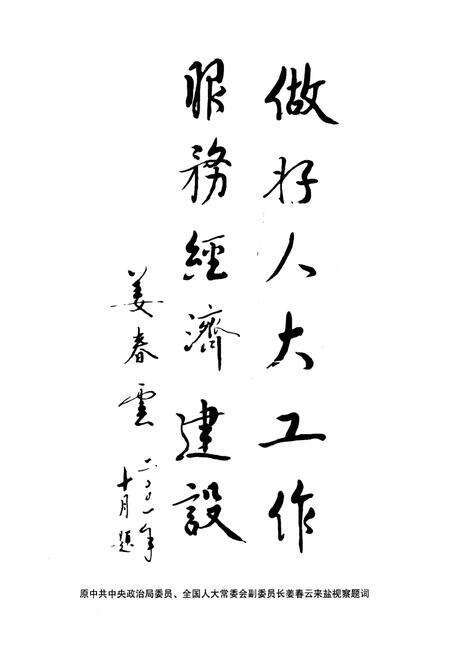 做好人大工作
服務經濟建設
姜春雲
二〇〇一年
十月題
原中共中央政治局委员、全国人大常委会副委员长姜春云来盐视察题词